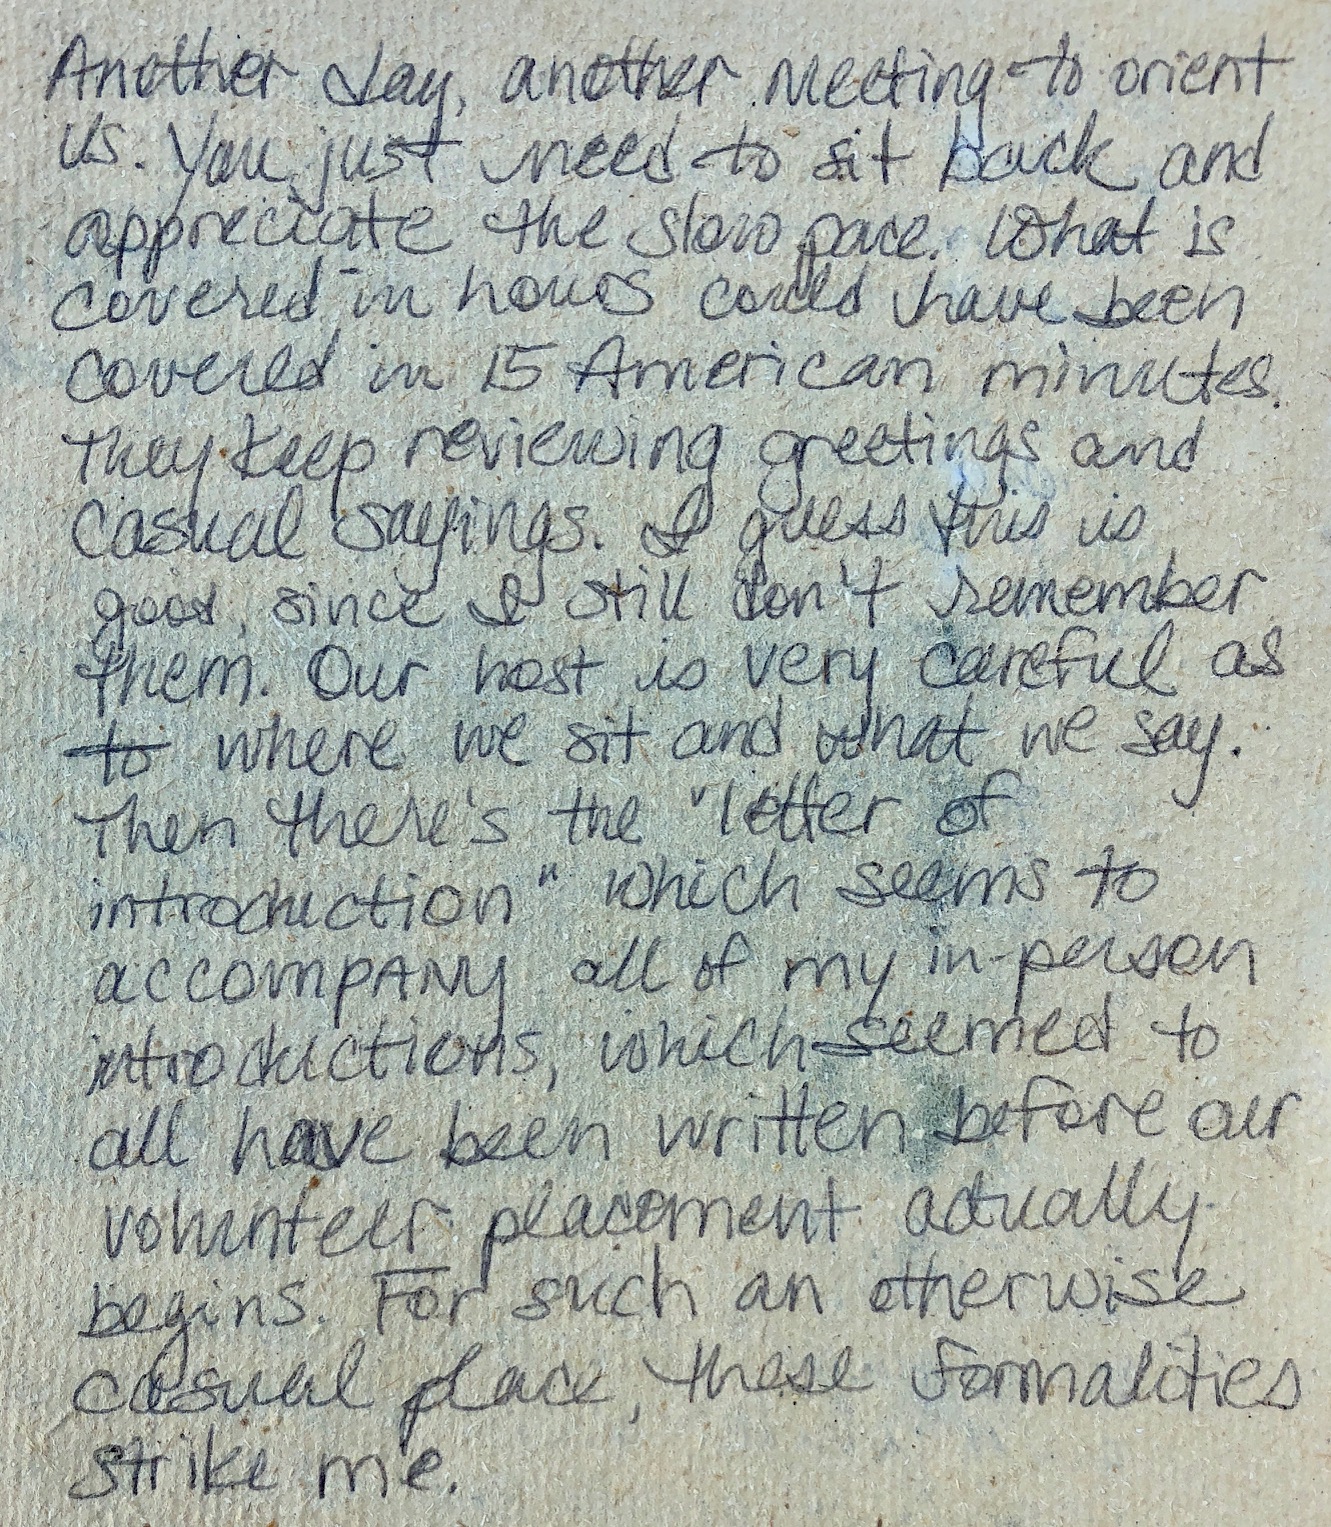 Another day, another meeting to orient
us. You just need to sit back and
appreciate the slow pace. What is
covered in hours could have been
covered in 15 American minutes.
They keep reviewing greetings and
casual sayings. I guess this is
good, since I still don't remember
them. Our host is very careful as
to where we sit and what we say.
Then there's the "letter of
introduction" which seems to
accompany all of my in-person
introductions, which seemed to
all have been written before our
volunteer placement actually
begins. For such an otherwise
casual place, these formalities
strike me.